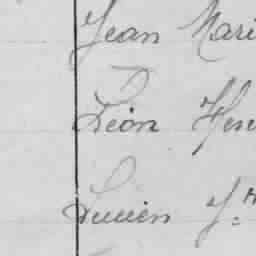 Jean Mari
Léon Hen
Lucien J.